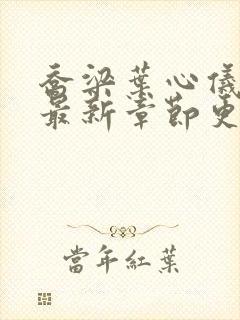 喬梁葉心儀
最新章節更
當年紅葉